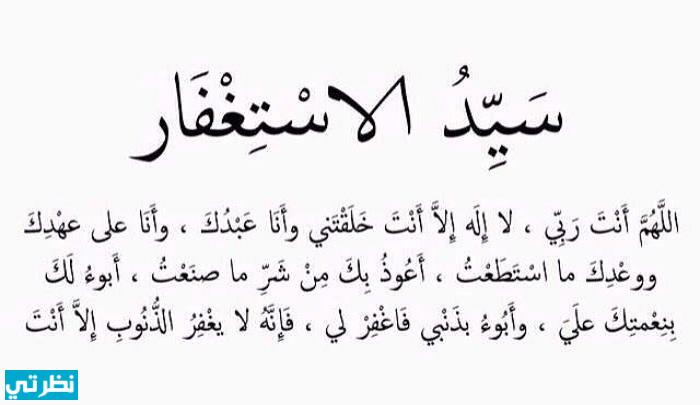 سَيِّدُ الاسْتِغْفَار
اللَّهُمَّ أَنْتَ رَبِّي ، لا إِلَه إِلاَّ أَنْتَ خَلَقْتَني وأَنَا عَبْدُكَ ، وأَنَا على عهْدِكَ
ووعْدِكَ ما اسْتَطَعْتُ ، أَعُوذُ بِكَ مِنْ شَرِّ ما صنَعْتُ ، أَبوءُ لَكَ
بِنِعْمتِكَ علَيَ ، وأَبُوءُ بذَنْبي فَاغْفِرْ لي ، فَإِنَّهُ لا يغْفِرُ الذُّنُوبِ إِلاَّ أَنْتَ
نظرتي